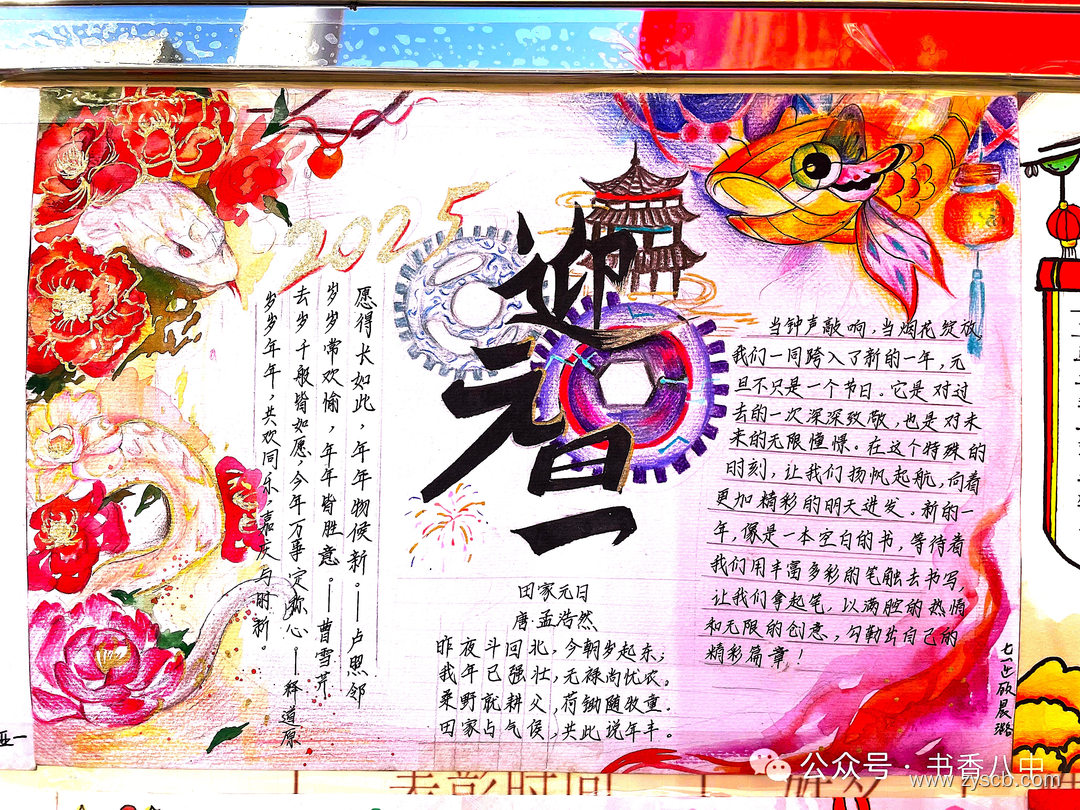 2025
迎元旦
愿得长如此,年年物候新。——卢照邻
岁岁常欢愉,年年皆胜意。——曹雪芹
去岁千般皆如愿,今年万事定称心。——释道原
岁岁年年,共欢同乐,嘉庆与时新。
田家元日
唐·孟浩然
昨夜斗回北,今朝岁起东;
我年已强壮,无禄尚忧农。
桑野就耕父,荷锄随牧童.
田家占气候,共此说年丰。
当钟声敲响,当烟花绽放
我们一同跨入了新的一年,元
旦不只是一个节日。它是对过
去的一次深深致敬,也是对未
来的无限憧憬。在这个特殊的
时刻,让我们扬帆起航,向着
更加精彩的明天进发。新的一
年,像是一本空白的书,等待着
我们用丰富多彩的笔触去书写,
让我们拿起笔,以满腔的热情
和无限的创意,勾勒出自己的
精彩篇章!
表彰时间
公众号·书香八中
www.zyscb.com